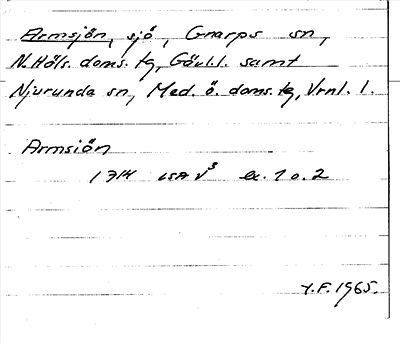 Armsjön, sjö, Gnarps sn,
N.Häls. doms. tg, Gävl.l. samt
Njurunda sn, Med. ö. doms. tg, Vrnl. l.
Armsiön
1714 LSA V³ ex. 1 o. 2
Y.F. 1965.